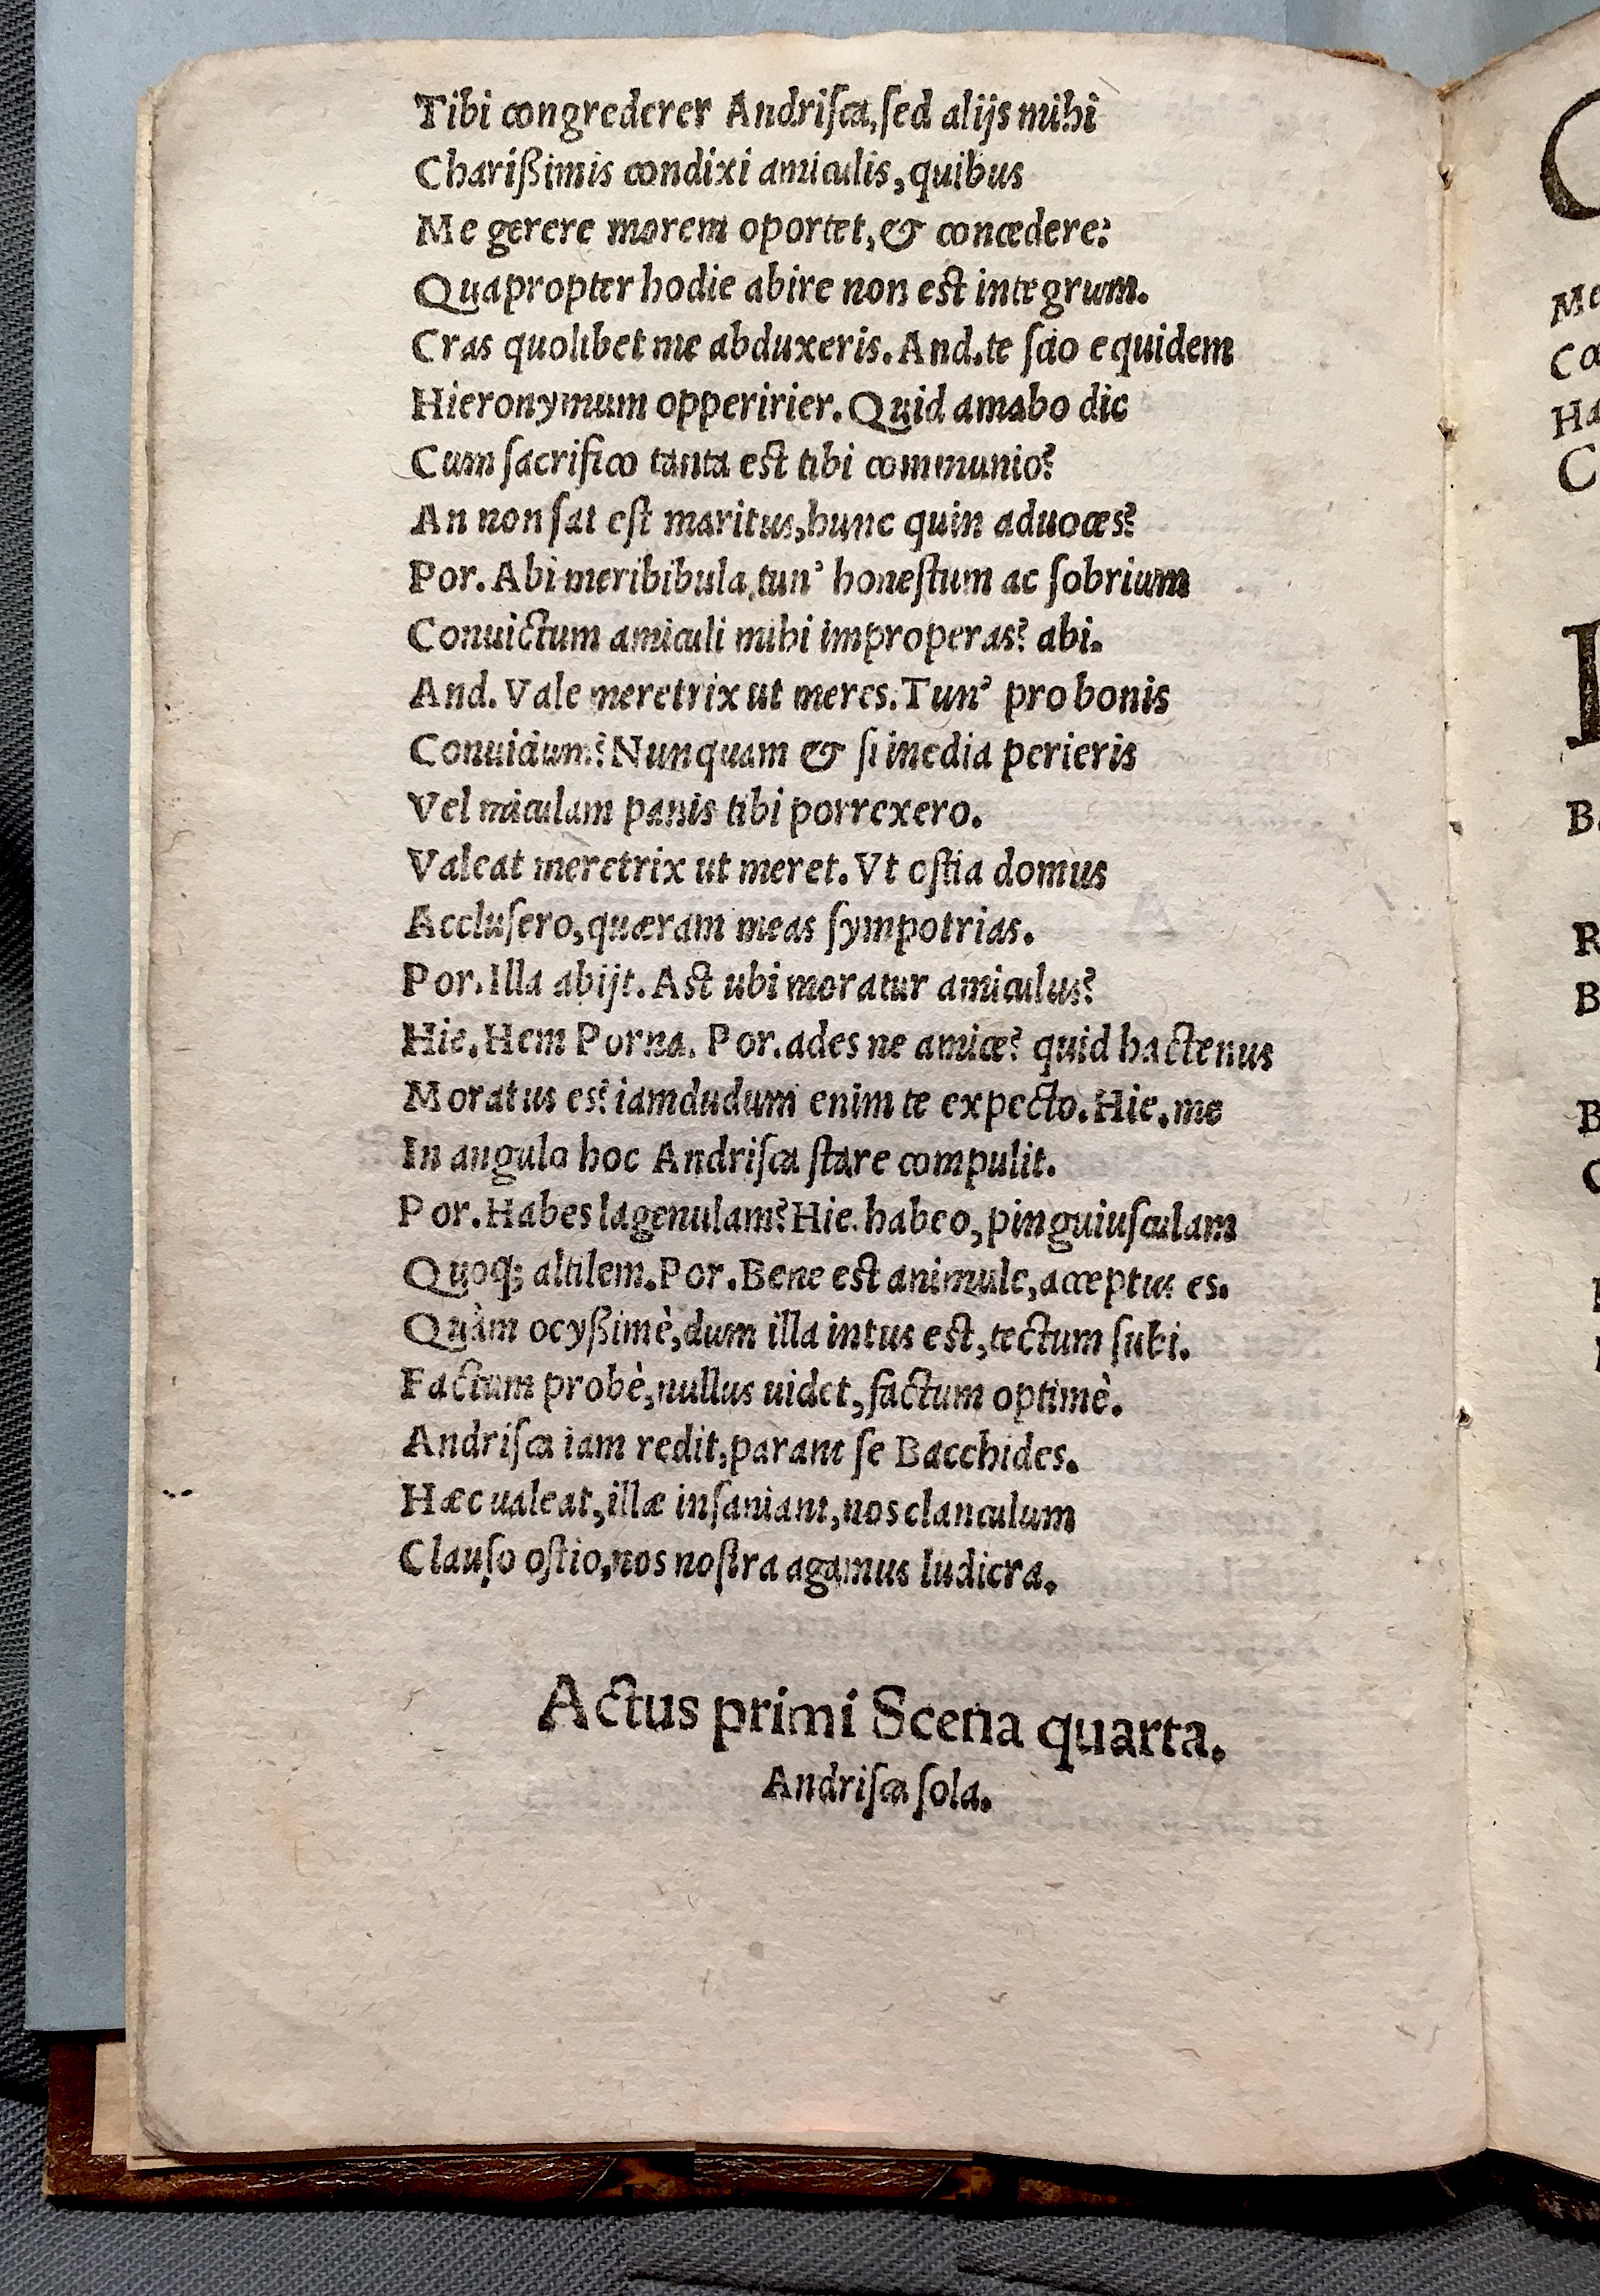 Tibi congrederer Andriſca, ſed alijs mihi
Charißimis condixi amiculis, quibus
Me gerere morem oportet, & concedere:
Quapropter hodie abire non est integrum.
Cras quolibet me abduxeris. And. te ſcio equidem
Hieronymum opperirier. Quid amabo dic
Cum ſacrifico tanta est tibi communio?
An non ſat eſt maritus, hunc quin aduoces?
Por. Abi meribibula, tun' honeſtum ac ſobrium
Conuictum amiculi mihi improperas? abi.
And. Vale meretrix ut meres. Tun' pro bonis
Conuicium? Nunquam & ſi inedia perieris
Vel miculam panis tibi porrexero.
Valeat meretrix ut meret. Vt oſtia domus
Accluſero, quæram meas ſympotrias.
Por. Illa abijt. Ast ubi moratur amiculus?
Hie. Hem Porna. Por. ades ne amice? quid hactenus
Moratus es? iamdudum enim te expecto. Hie. me
In angulo hoc Andriſca ſtare compulit.
Por. Habes lagenulam? Hie. habeo, pinguiuſculam
Quoq; altilem. Por. Bene est animule, acceptus es.
Quàm ocyßimè, dum illa intus est, tectum ſubi.
Factum probè, nullus uidet, factum optimè.
Andriſca iam redit, parant ſe Bacchides.
Hæc ualeat, illæ inſaniant, nos clanculum
Clauſo oſtio, nos noſtra agamus ludicra.
Actus primi Scena quarta.
Andriſca ſola.